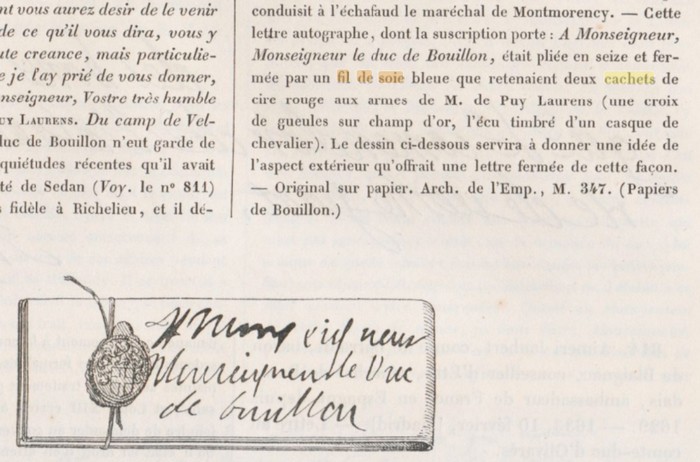 nt vous aurez desir de le venir
de ce qu'il vous dira, vous y
ute creance, mais particulie-
e je l'ay prié de vous donner,
nseigneur, Vostre très humble
UY LAURENS. Du camp de Vel-
duc de Bouillon n'eut garde de
quiétudes récentes qu'il avait
té de Sedan (Voy. le nº 811)
s fidèle à Richelieu, et il dé-
conduisit à l'échafaud le maréchal de Montmorency. — Cette
lettre autographe, dont la suscription porte : A Monseigneur,
Monseigneur le duc de Bouillon, était pliée en seize et fer-
mée par un fil de soie bleue que retenaient deux cachets de
cire rouge aux armes de M. de Puy Laurens (une croix
de gueules sur champ d'or, l'écu timbré d'un casque de
chevalier). Le dessin ci-dessous servira à donner une idée de
l'aspect extérieur qu'offrait une lettre fermée de cette façon.
— Original sur papier. Arch. de l'Emp., M. 347. (Papiers
de Bouillon.)
A Monseigneur
Monseigneur le Duc
de bouillon